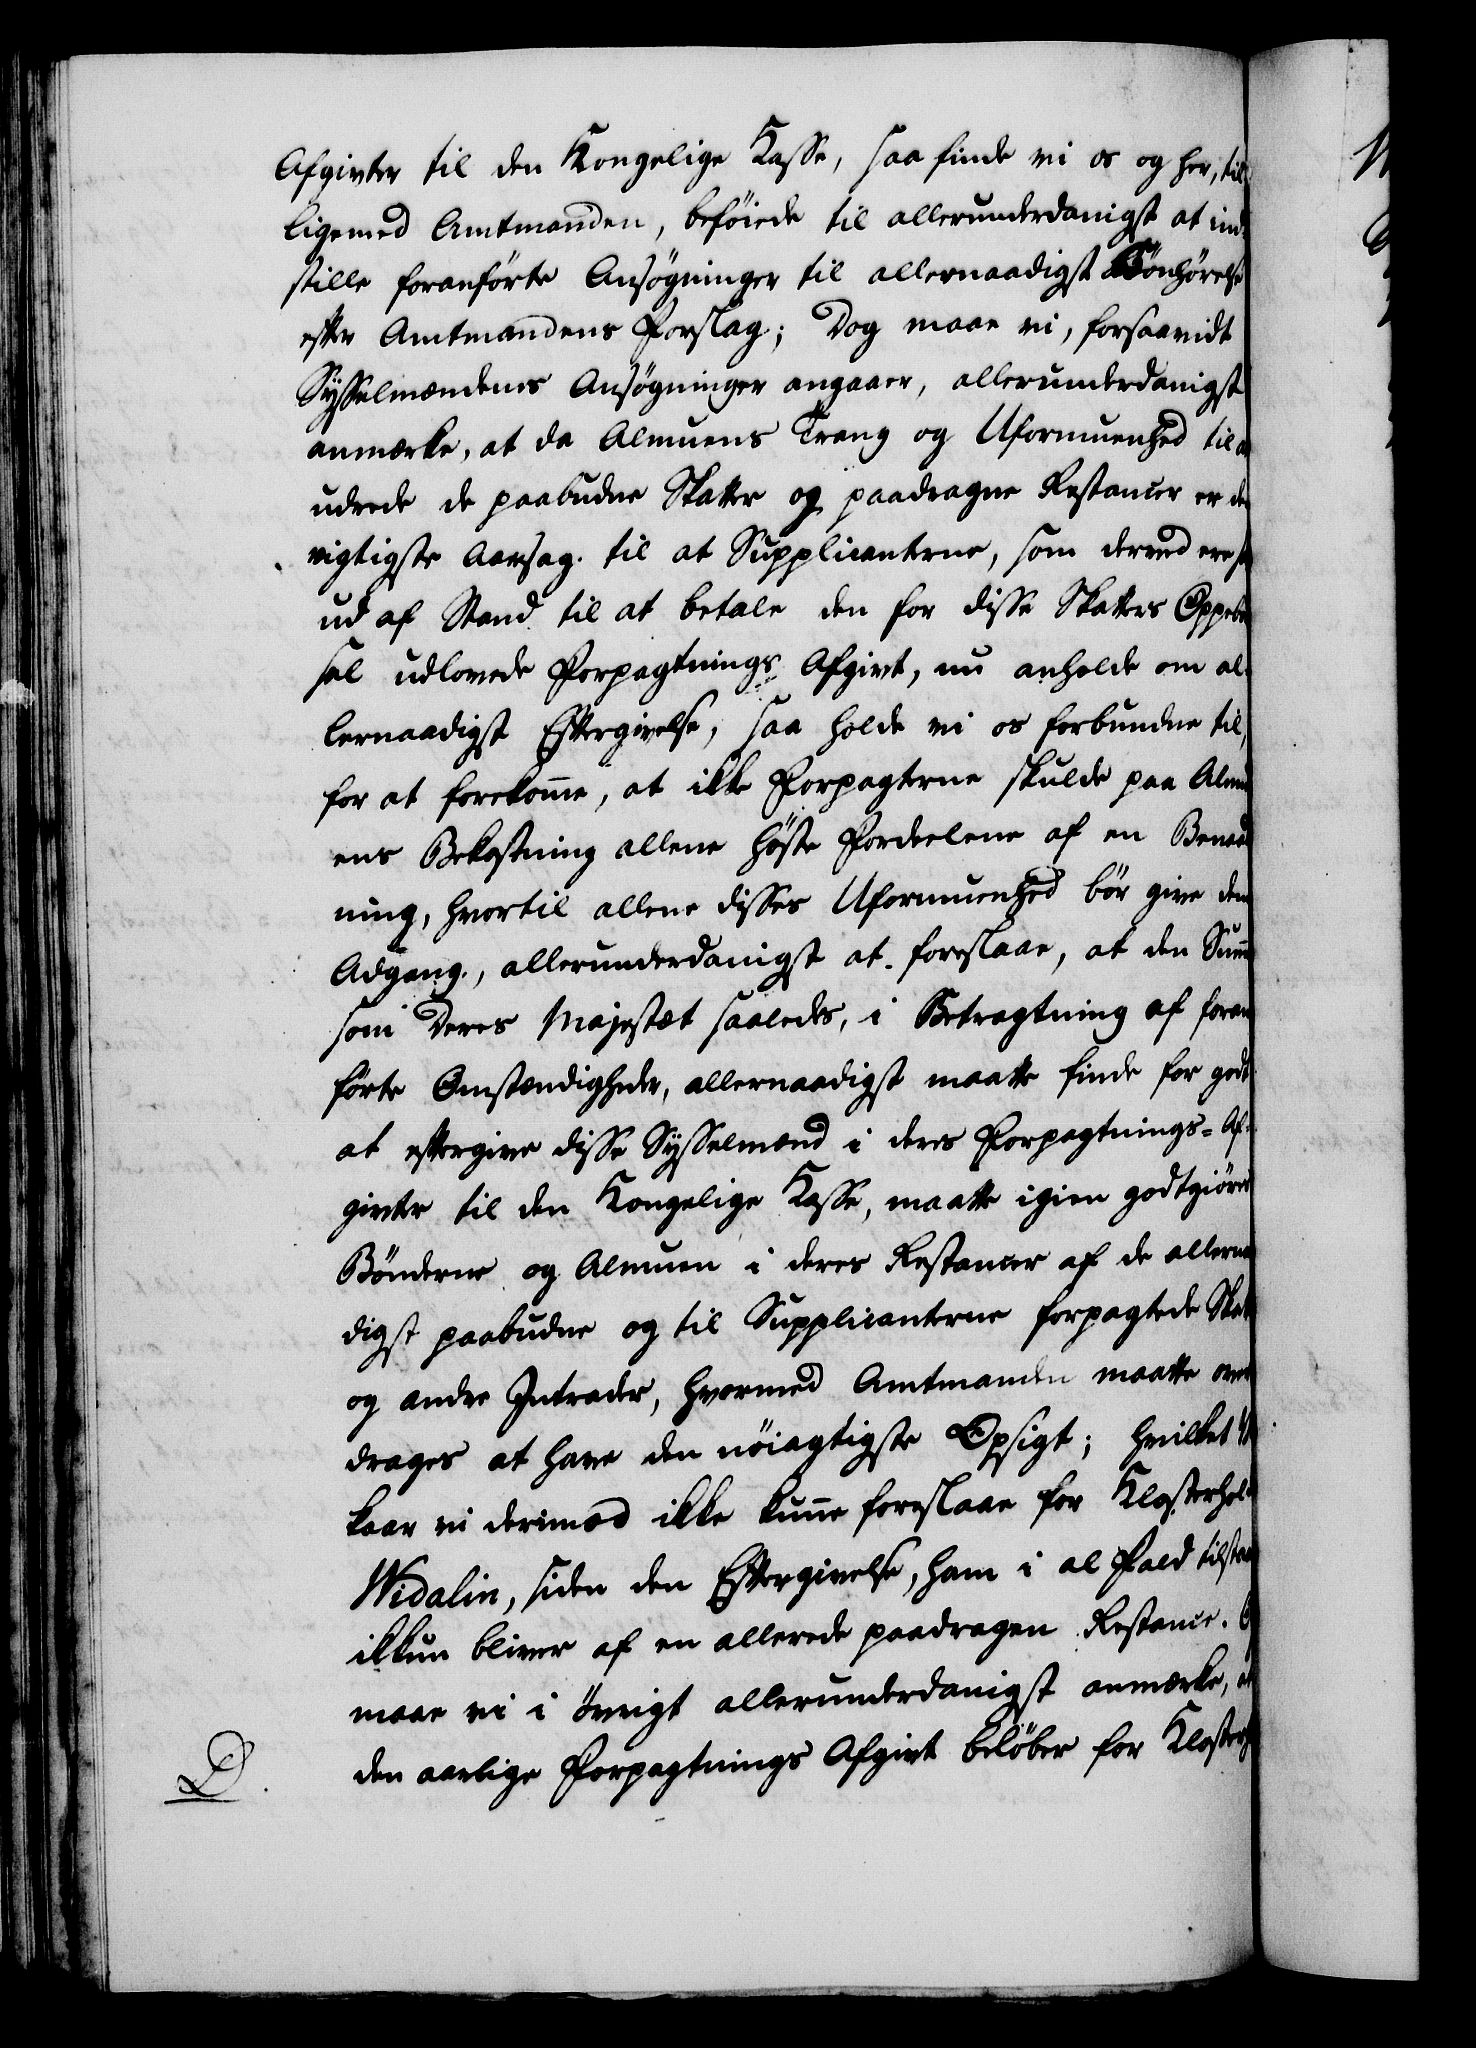 Afgivter til den Kongelige Kasse, saa finde vi os og her, til
ligemed Amtmanden, beföiede til allerunderdanigst at ind
stille foranförte Ansøgninger til allernaadigst Bönhørelse
efter Amtmandens Forslag; Dog maae vi, forsaavidt
Sysselmændenes Ansøgninger angaaer, allerunderdanigst
anmærke, at da Almuens Trang og Uformuenhed til a
udrede de paabudne Skatter og paadragne Restancer er de
vigtigste Aarsag til at Supplicanterne, som derved ere
ud af Stand til at betale den for disse Skatters Oppebør
sel udlovede Forpagtnings Afgivt, nu anholde om al
lernaadigst Eftergivelse, saa holde vi os forbundne til,
for at forekom̃e, at ikke Forpagterne skulde paa Almu
ens Bekostning allene høste Fordeelene af en Benaad
ning, hvortil allene disses Uformuenhed bör give dem
Adgang, allerunderdanigst at foreslaae, at den Sum̃
som Deres Majestæt saaledes, i Betragtning af foran
förte Omstændigheder, allernaadigst maatte finde for godt
at eftergive disse Sysselmænd i deres Forpagtnings-Af-
givter til den Kongelige Kasse, maatte igien godtgiöres
Bönderne og Almuen i deres Restancer af de allernaa
digst paabudne og til Supplicanterne forpagtede Skat
og andre Intrader, hvormed Amtmanden maatte over
drages at have den nöiagtigste Opsigt; hvilket Vil
kaar vi derimod ikke kun̄e foreslaae for Klosterhold
Widalin, siden den Eftergivelse, ham i al Fald tilstaa
ikkun bliver af en allerede paadragen Restance. Og
maae vi i övrigt allerunderdanigst anmærke, at
den aarlige Forpagtnings Afgivt belöber for Klosterh
D.